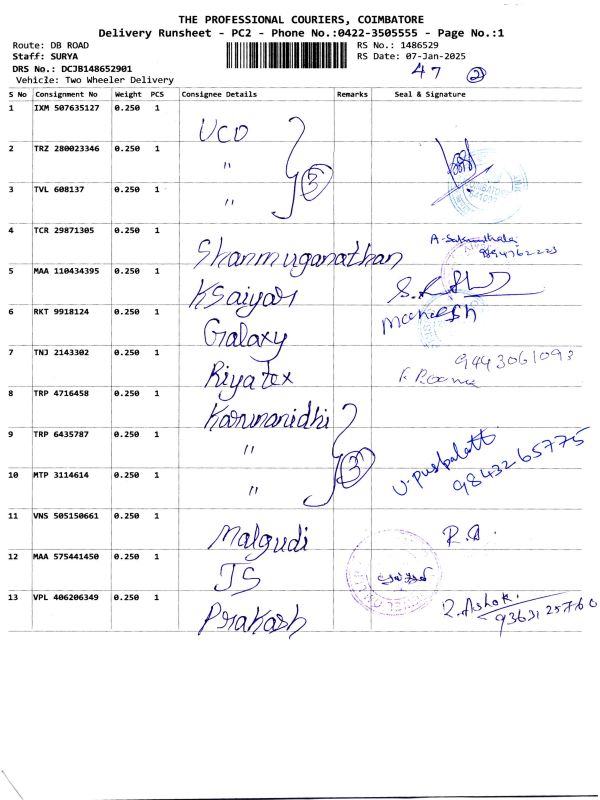 THE PROFESSIONAL COURIERS, COIMBATORE
Delivery Runsheet - PC2 - Phone No.:0422-3505555 - Page No.:1
Route: DB ROAD
RS No.: 1486529
Staff: SURYA
RS Date: 07-Jan-2025
DRS No.: DCJB148652901
47 2
Vehicle: Two Wheeler Delivery
S No Consignment No Weight PCS Consignee Details Remarks Seal & Signature
1 IXM 507635127 0.250 1 UCO
2 TRZ 280023346 0.250 1 "
3 TVL 608137 0.250 1 " 3
4 TCR 29871305 0.250 1 Shanmuganathan
5 MAA 110434395 0.250 1 KSaiyar
6 RKT 9918124 0.250 1 Galaxy
7 TNJ 2143302 0.250 1 Riyatex 9443061093
8 TRP 4716458 0.250 1 Karunanidhi
9 TRP 6435787 0.250 1 " U. Puspalatt
10 MTP 3114614 0.250 1 " 3 9843265775
11 VNS 505150661 0.250 1 Malgudi
12 MAA 575441450 0.250 1 JS
13 VPL 406206349 0.250 1 Prakash R. Ashok.